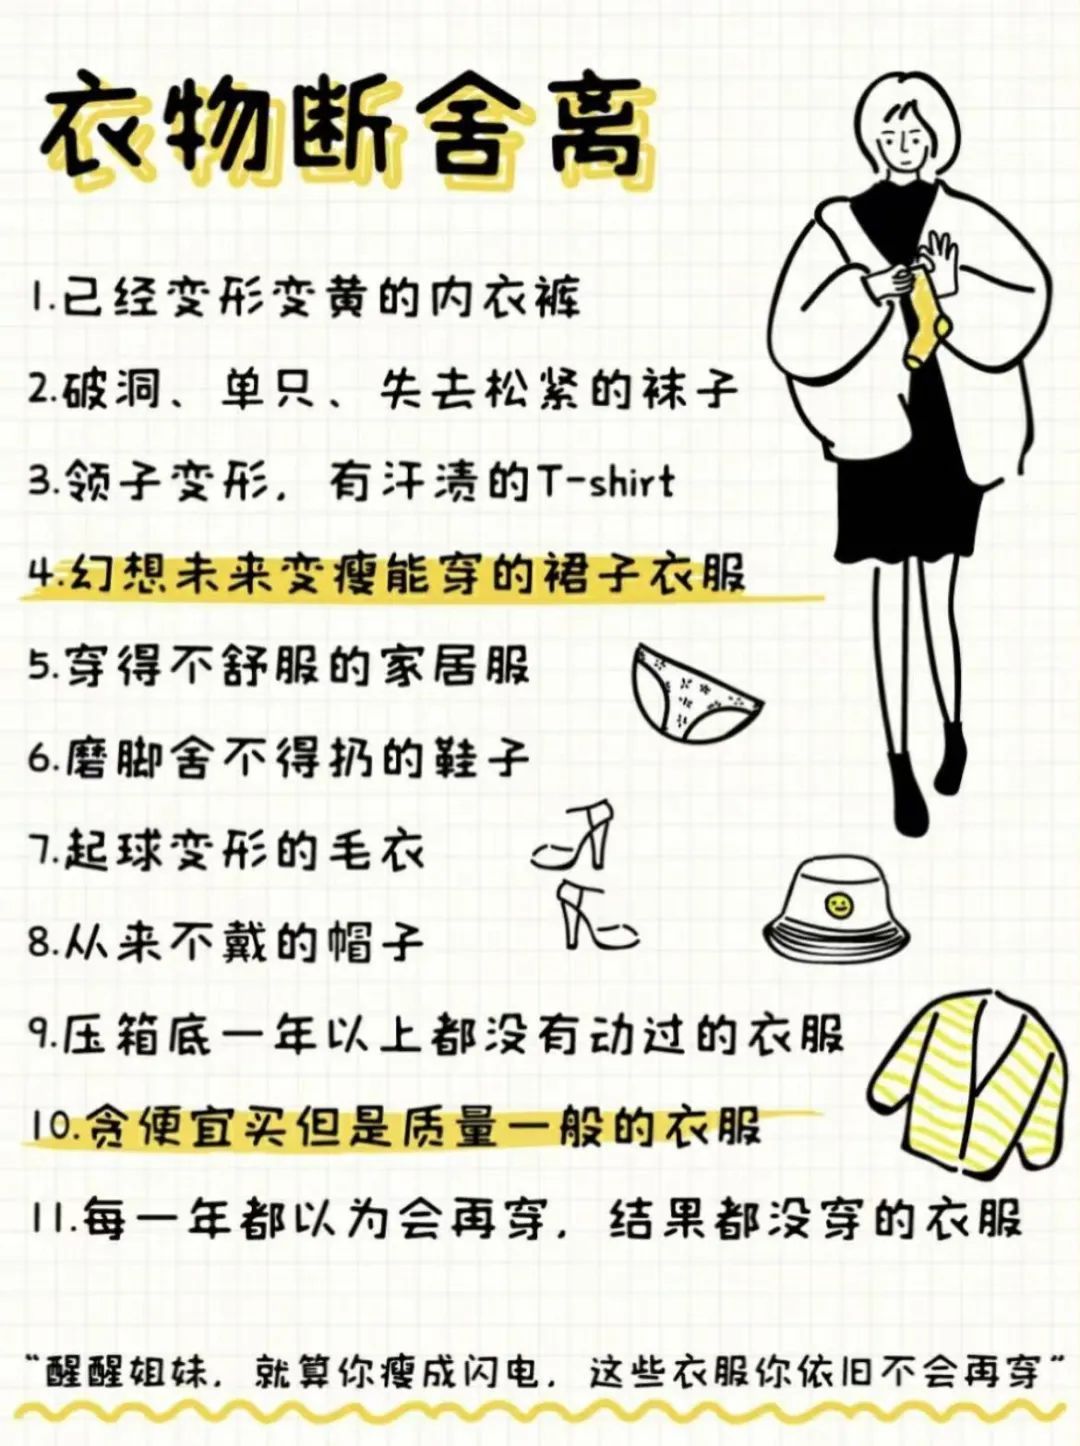 衣物断舍离
1.已经变形变黄的内衣裤
2.破洞、单只、失去松紧的袜子
3.领子变形，有汗渍的T-shirt
4.幻想未来变瘦能穿的裙子衣服
5.穿得不舒服的家居服
6.磨脚舍不得扔的鞋子
7.起球变形的毛衣
8.从来不戴的帽子
9.压箱底一年以上都没有动过的衣服
10.贪便宜买但是质量一般的衣服
11.每一年都以为会再穿，结果都没穿的衣服
“醒醒姐妹，就算你瘦成闪电，这些衣服你依旧不会再穿”